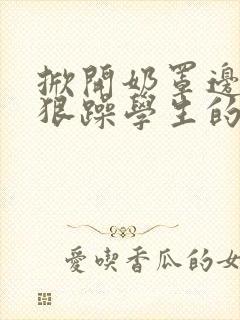 掀開奶罩邊
狠躁學生的
愛喫香瓜的女